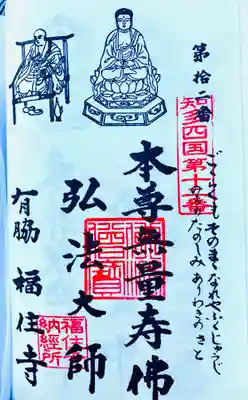 第拾二番
知多四国第十二番
ごくらくも そのまゝなれや ふくじゅうじ
たのしみ ありわきのさと
本尊無量寿佛
弘法大師
有脇 福住寺
福住寺
納経所